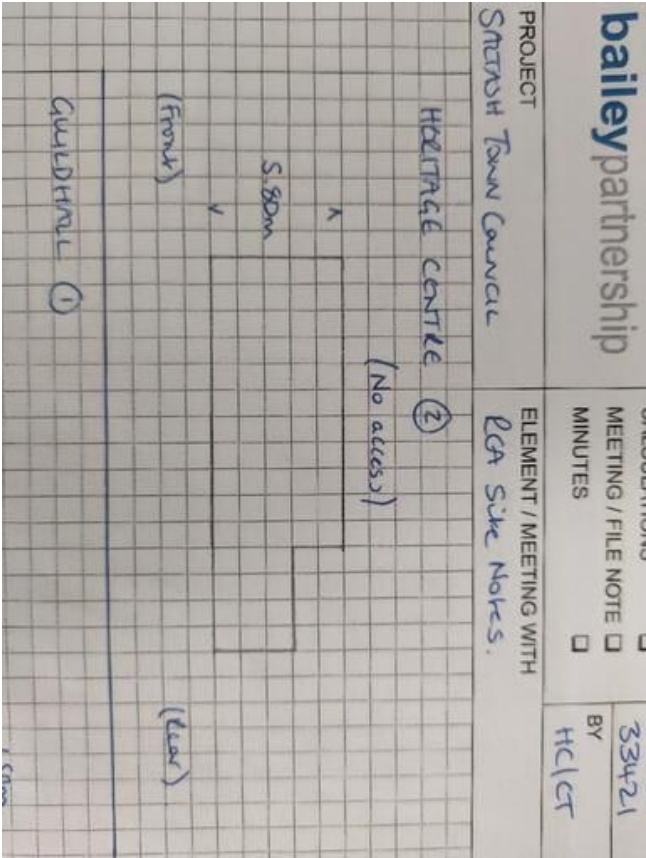 baileypartnership
CALCULATIONS
MEETING / FILE NOTE
MINUTES
33421
BY
HC/CT
PROJECT
SALTASH TOWN COUNCIL
ELEMENT / MEETING WITH
RCA Site Notes.
HERITAGE CENTRE ②
(No access)
5.80m
(Front)
(Rear)
GUILDHALL ①